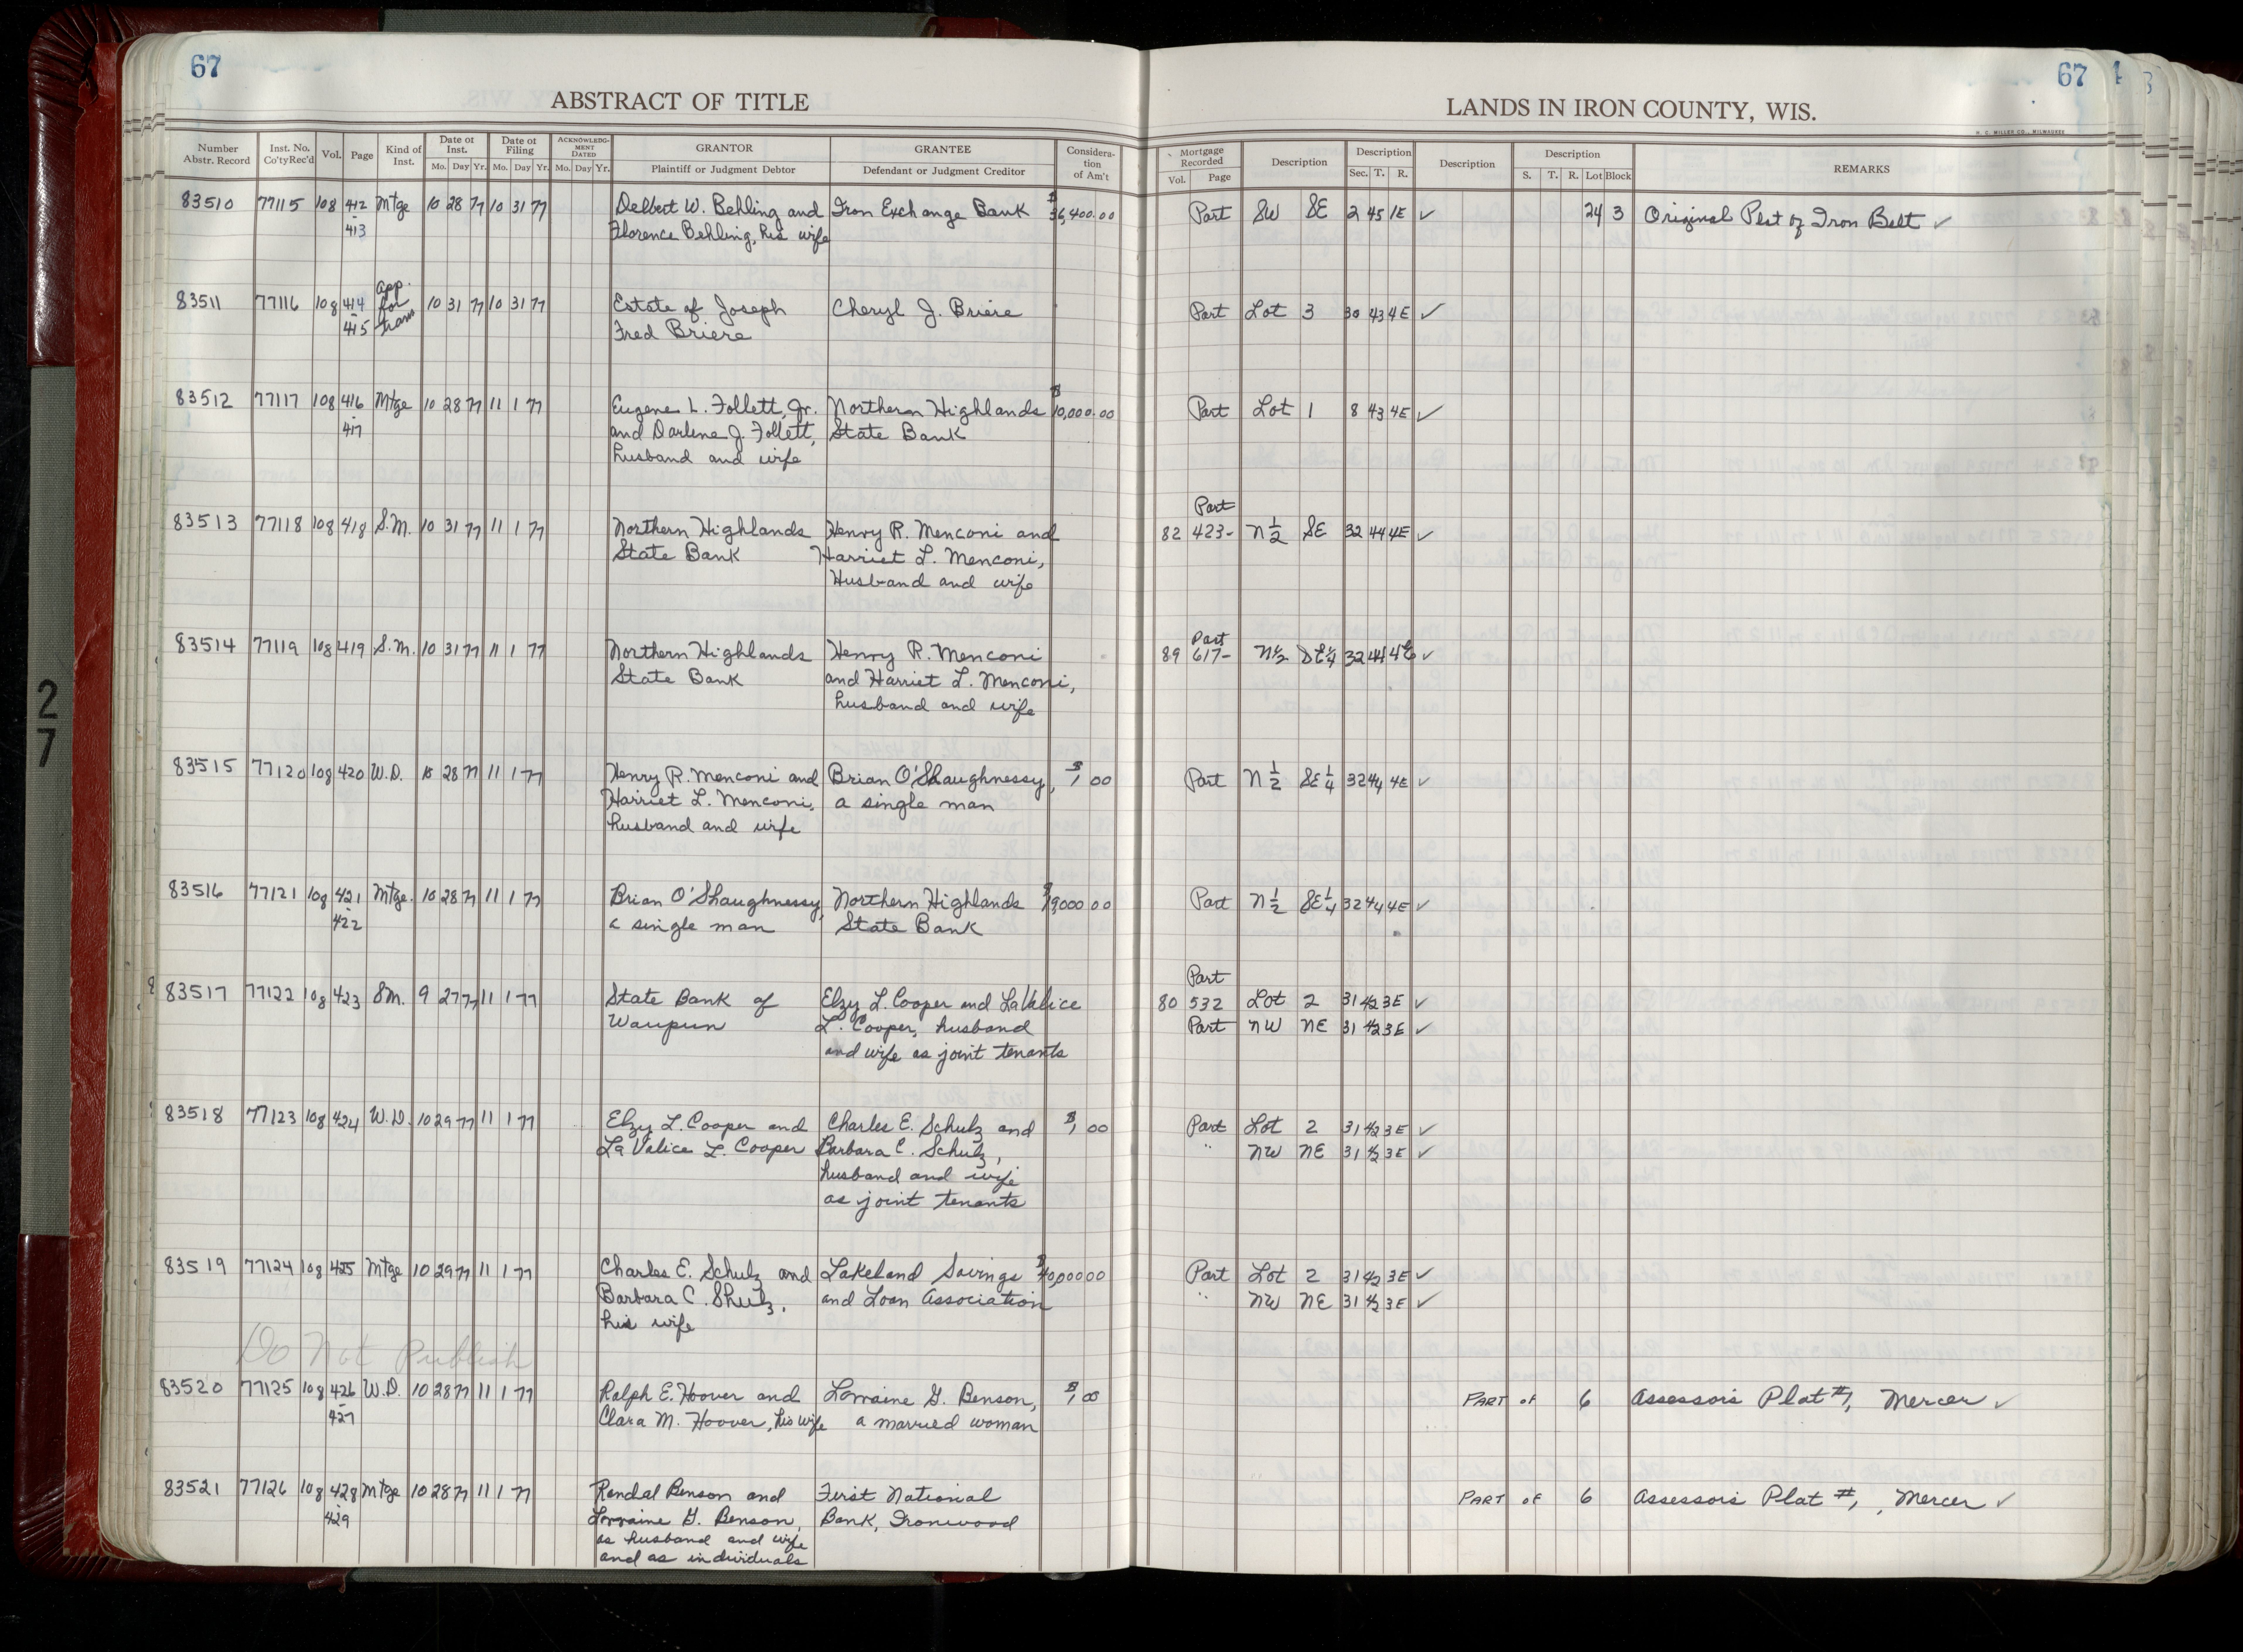 67
67
ABSTRACT OF TITLE
LANDS IN IRON COUNTY, WIS.
H. C. MILLER CO., MILWAUKEE
Number Abstr. Record | Inst. No. Co'tyRec'd | Vol. | Page | Kind of Inst. | Date of Inst. Mo. Day Yr. | Date of Filing Mo. Day Yr. | ACKNOWLEDGMENT DATED Mo. Day Yr. | GRANTOR Plaintiff or Judgment Debtor | GRANTEE Defendant or Judgment Creditor | Consideration of Am't | Mortgage Recorded Vol. Page | Description | Description Sec. T. R. | Description | Description S. T. R. Lot Block | REMARKS
83510 77115 108 412 Mtge 10 28 77 10 31 77 Delbert W. Behling and Iron Exchange Bank $36,400.00 Part SW SE 2 45 1E ✓ 24 3 Original Plat of Iron Belt ✓
- 413 Florence Behling, his wife
83511 77116 108 414 App. for Trans 10 31 77 10 31 77 Estate of Joseph Cheryl J. Briere Part Lot 3 30 43 4E ✓
- 415 Fred Briere
83512 77117 108 416 Mtge 10 28 77 11 1 77 Eugene L. Follett, Jr. Northern Highlands $10,000.00 Part Lot 1 8 43 4E ✓
- 417 and Darlene J. Follett, State Bank
husband and wife
Part
83513 77118 108 418 S.M. 10 31 77 11 1 77 Northern Highlands Henry R. Menconi and 82 423- N 1/2 SE 32 44 4E ✓
State Bank Harriet L. Menconi,
Husband and wife
Part
83514 77119 108 419 S.M. 10 31 77 11 1 77 Northern Highlands Henry R. Menconi 89 617- N 1/2 SE 1/4 32 44 4E ✓
State Bank and Harriet L. Menconi,
husband and wife
83515 77120 108 420 W.D. 10 28 77 11 1 77 Henry R. Menconi and Brian O'Shaughnessy, $1,00 Part N 1/2 SE 1/4 32 44 4E ✓
Harriet L. Menconi, a single man
husband and wife
83516 77121 108 421 Mtge. 10 28 77 11 1 77 Brian O'Shaughnessy, Northern Highlands $19,000 00 Part N 1/2 SE 1/4 32 44 4E ✓
- 422 a single man State Bank
Part
83517 77122 108 423 SM. 9 27 77 11 1 77 State Bank of Elzy L. Cooper and LaValice 80 532 Lot 2 31 42 3E ✓
Waupun L. Cooper, husband Part NW NE 31 42 3E ✓
and wife as joint tenants
83518 77123 108 424 W.D. 10 29 77 11 1 77 Elzy L. Cooper and Charles E. Schulz and $1,00 Part Lot 2 31 42 3E ✓
La Valice L. Cooper Barbara C. Schulz, " NW NE 31 42 3E ✓
husband and wife
as joint tenants
83519 77124 108 425 Mtge 10 29 77 11 1 77 Charles E. Schulz and Lakeland Savings $40,000 00 Part Lot 2 31 42 3E ✓
Barbara C. Shulz, and Loan Association " NW NE 31 42 3E ✓
his wife
Do Not Publish
83520 77125 108 426 W.D. 10 28 77 11 1 77 Ralph E. Hoover and Lorraine G. Benson, $1,00 PART OF 6 Assessors Plat #1, Mercer ✓
- 427 Clara M. Hoover, his wife a married woman
83521 77126 108 428 Mtge 10 28 77 11 1 77 Randal Benson and First National PART OF 6 Assessors Plat #1, Mercer ✓
- 429 Lorraine G. Benson, Bank, Ironwood
as husband and wife
and as individuals
27